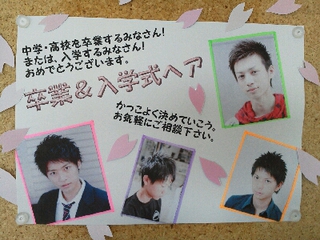 中学・高校を卒業するみなさん!
または、入学するみなさん!
おめでとうございます。
卒業&入学式ヘア
かっこよく決めていこう。
お気軽にご相談下さい。